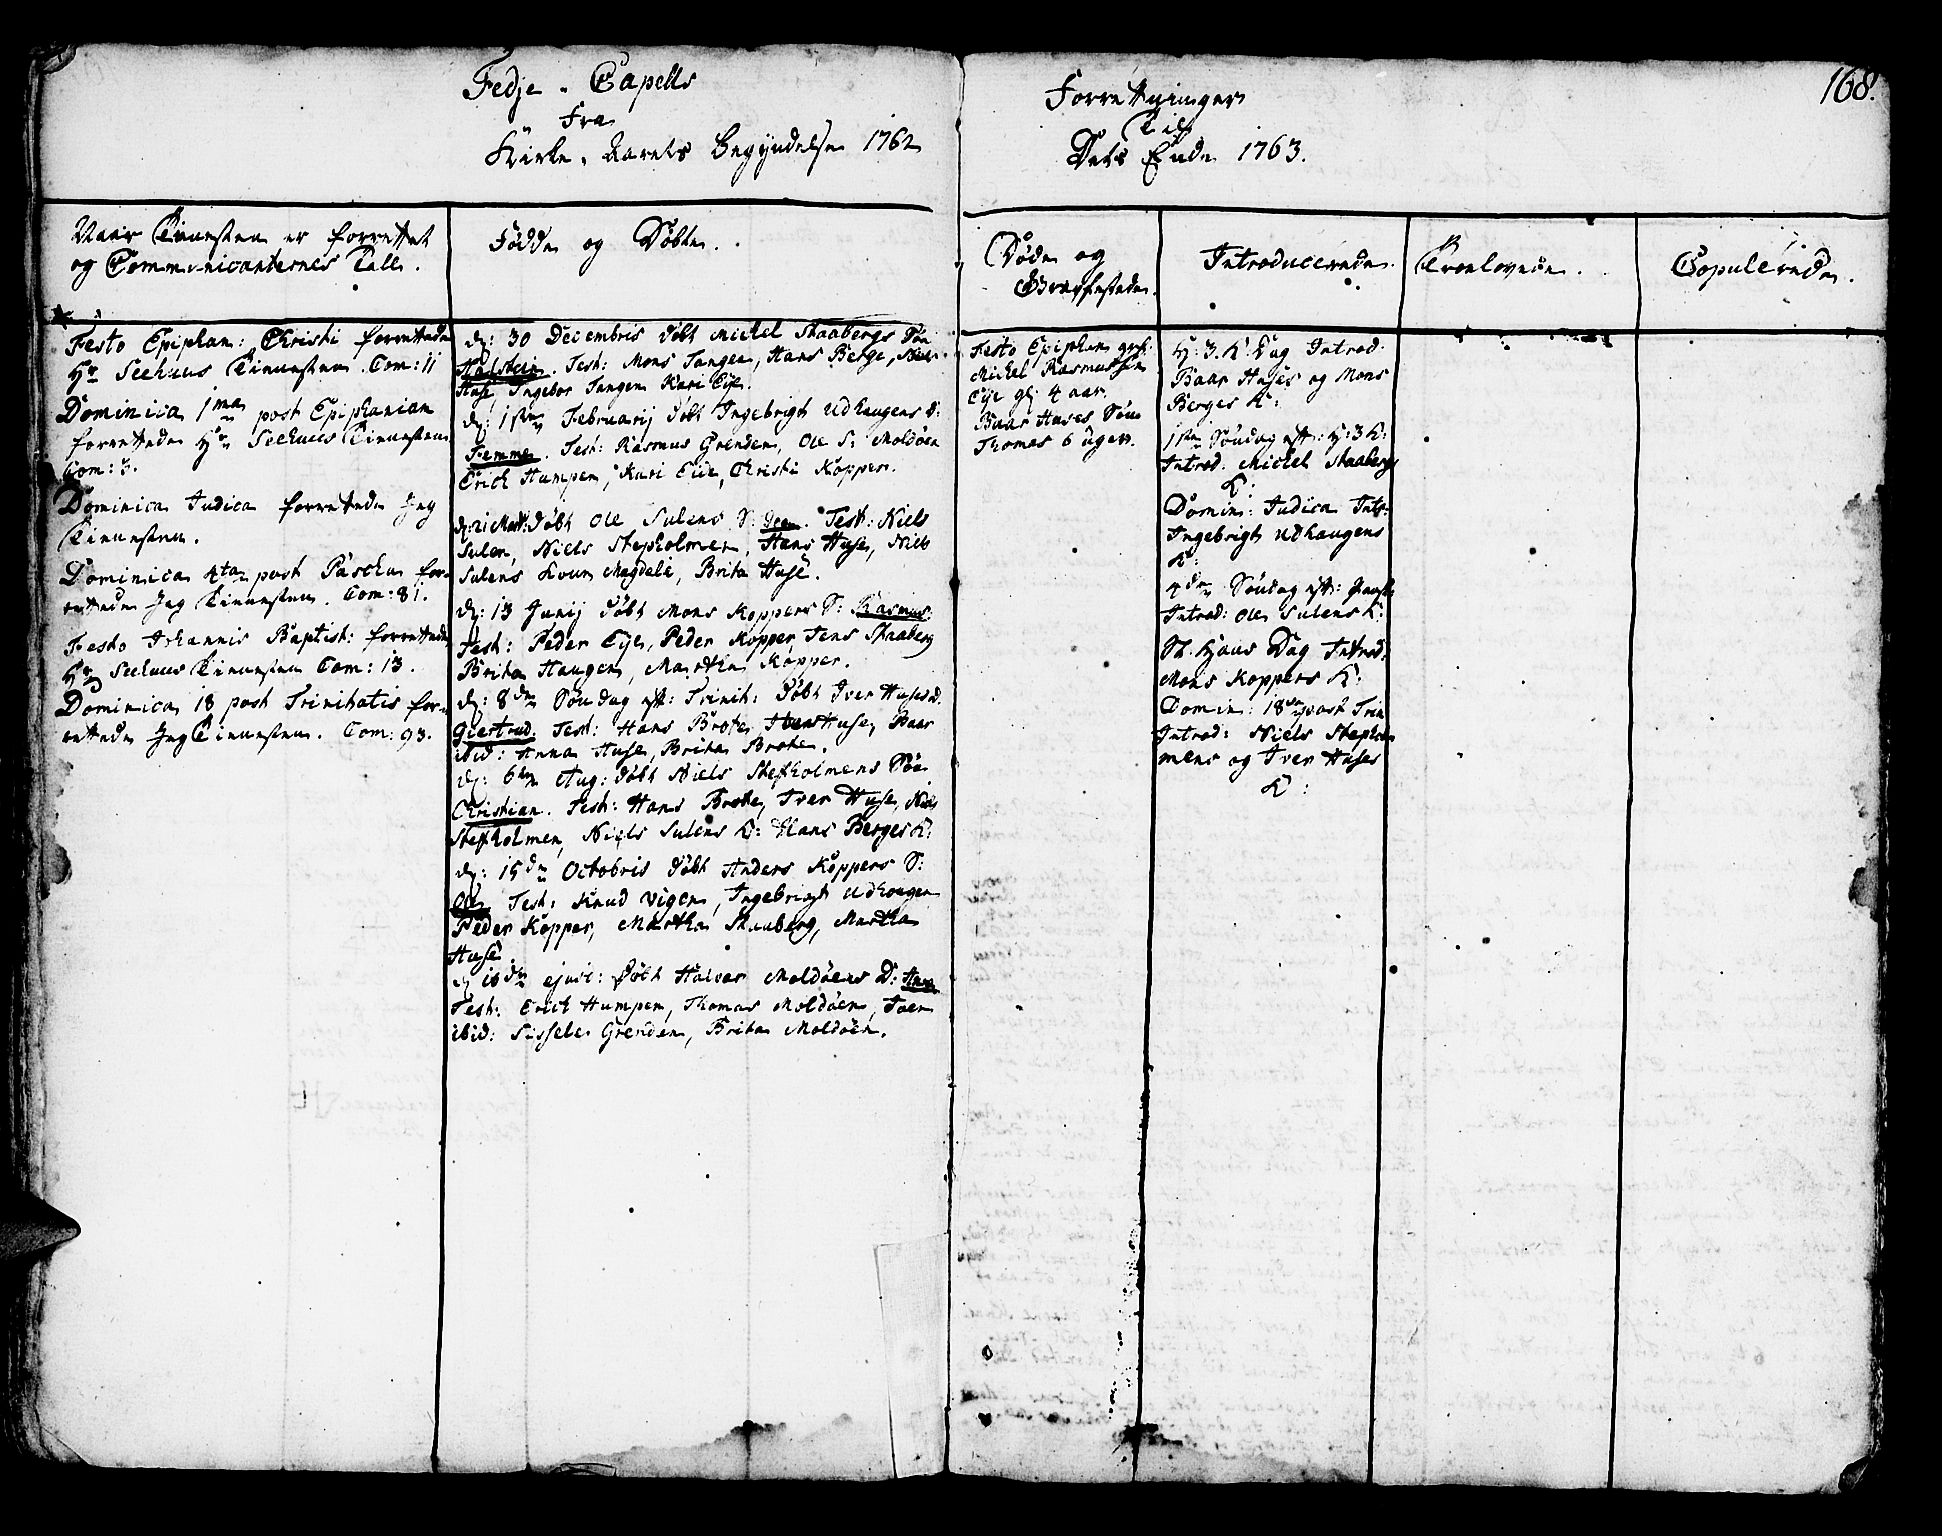 Fedje Capells
Fra
Kirke Aarets Begyndelse 1762
Forretninger
Til
Dets Ende 1763.
168.
Naar Tienesten er forrettet
og Communicanternes Tall.
Fødde og Døbte.
Døde og
Gravfestede.
Introducerede.
Troelovede.
Copulerede.
Festo Epiphan: Christi forrettede
Hr Seehuus Tienesten. Com: 11
Dominica 1ma post Epiphanian
forrettede Hr Seehuus Tienesten
Com: 3.
Dominica Judica forrettede Jeg
Tienesten.
Dominica 4ta post Pascha for-
rettede Jeg Tienesten. Com: 81.
Festo Johannis Baptist: forrettede
Hr Seehuus Tienesten Com: 13.
Dominica 18 post Trinitatis for-
rettede Jeg Tienesten. Com: 93.
d: 30 Decembris døbt Michel Skaabergs Søn
Halstein. Test: Mons Tangen, Hans Berge, Niels
Huse, Ingebor Tangen Kari Eye.
d: 1ste Februarij døbt Ingebrigt Udhaugens D:
Femme. Test: Rasmus Grenden, Ole S: Moldøen
Erich Humpen, Kari Eide, Christi Kopper.
d: 21 Mart: døbt Ole Sulens S: Test: Niels
Sulen, Niels Stepholmen, Hans Huse, Niels
Sulens Kone Magdele, Brita Huse.
d: 13 Junij døbt Mons Koppers S: Rasmus.
Test: Peder Eye, Peder Kopper Jens Skaaberg
Brita Haugen, Martha Kopper.
d: 8de Søndag eft: Trinit: døbt Iver Huses d.
Giertrud. Test: Hans Brote, Huse, Baar
ibid: Anna Huse, Brita Brote.
d: 6te Aug: døbt Niels Stepholmens Søn
Christian. Test: Hans Brote, Iver Huse, Niels
Stepholmen, Niels Sulens K: Hans Berges K:
d: 15de Octobris døbt Anders Koppers S:
Ole Test: Knud Vigen, Ingebrigt Udhougen
Peder Kopper, Martha Skaaberg, Martha
Huse.
d 16de ejusd: døbt Halvor Moldøens D: Anna
Test: Erich Humpen, Thomas Moldøen, Joen
ibid: Sissele Grenden, Brita Moldøen.
Festo Epiphan grf:
Michel Rasmussen
Eye gl: 4 aar.
Baar Huses Søn
Thomas 6 uger.
H: 3. K. Dag Introd:
Baar Huses og Mons
Berges K:
1ste Søndag eft: H: 3 K:
Introd: Michel Skaabergs
K:
Domin: Judica Int:
Ingebrigt Udhaugens
K:
4de Søndag eft: Paasch
Introd: Ole Sulens K:
St. Hans Dag Introd:
Mons Koppers K:
Domin: 18de post Trin
Introd: Niels Stephol
mens og Iver Huses
K: